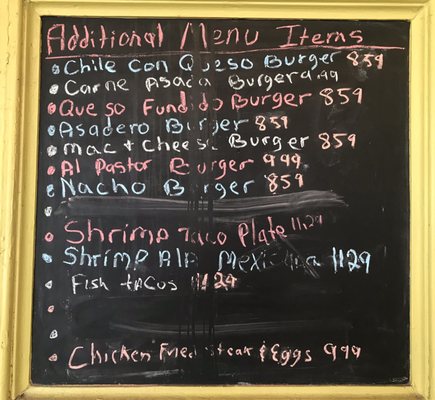 Additional Menu Items
Chile Con Queso Burger 859
Carne Asada Burger 9.99
Queso Fundido Burger 859
Asadero Burger 859
Mac + Cheese Burger 859
Al Pastor Burger 999
Nacho Burger 859
Shrimp Taco Plate 11.29
Shrimp Ala Mexicana 1129
Fish tacos 11.29
Chicken Fried Steak & Eggs 999